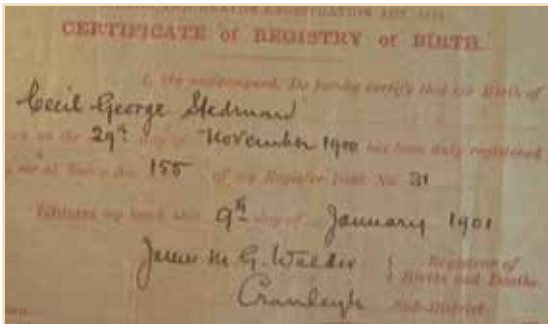 REGISTRATION ACT
CERTIFICATE of REGISTRY of BIRTH.
I, the undersigned, Do hereby certify that the Birth of
Cecil George Stedman
on the 29th day of November 1900 has been duly registered
by me at Entry No. 155 of my Register Book No. 31
Witness my hand this 9th day of January 1901
James M G. Walder { Registrar of
Births and Deaths.
Cranleigh Sub-District